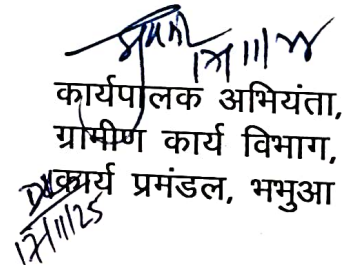 कार्यपालक अभियंता,
ग्रामीण कार्य विभाग,
कार्य प्रमंडल, भभुआ
17/11/25